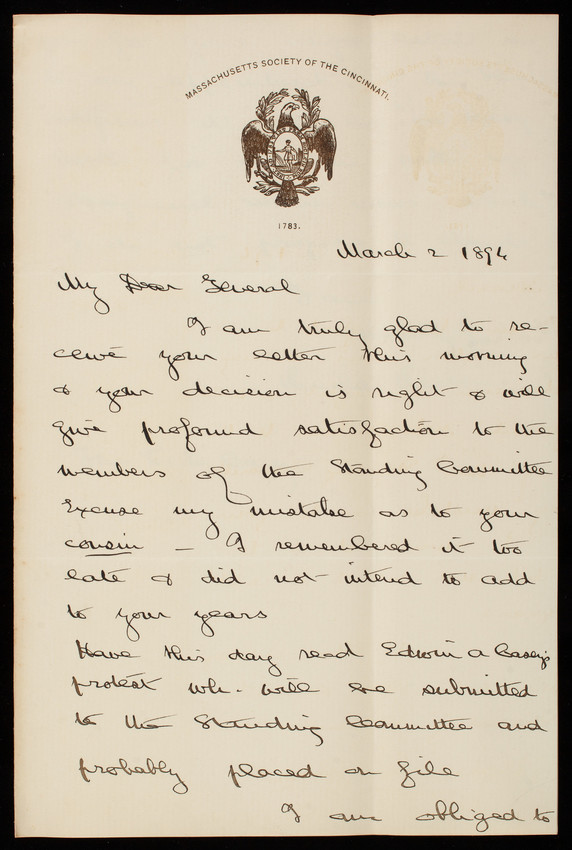 MASSACHUSETTS SOCIETY OF THE CINCINNATI.
1783.
March 2 1894
My Dear General
I am truly glad to re-
ceive your letter this morning
& your decision is right & will
give profound satisfaction to the
members of the Standing Committee
Excuse my mistake as to your
cousin - I remembered it too
late & did not intend to add
to your years
Have this day read Edwin A Casey's
protest wh. will be submitted
to the Standing Committee and
probably placed on file
I am obliged to